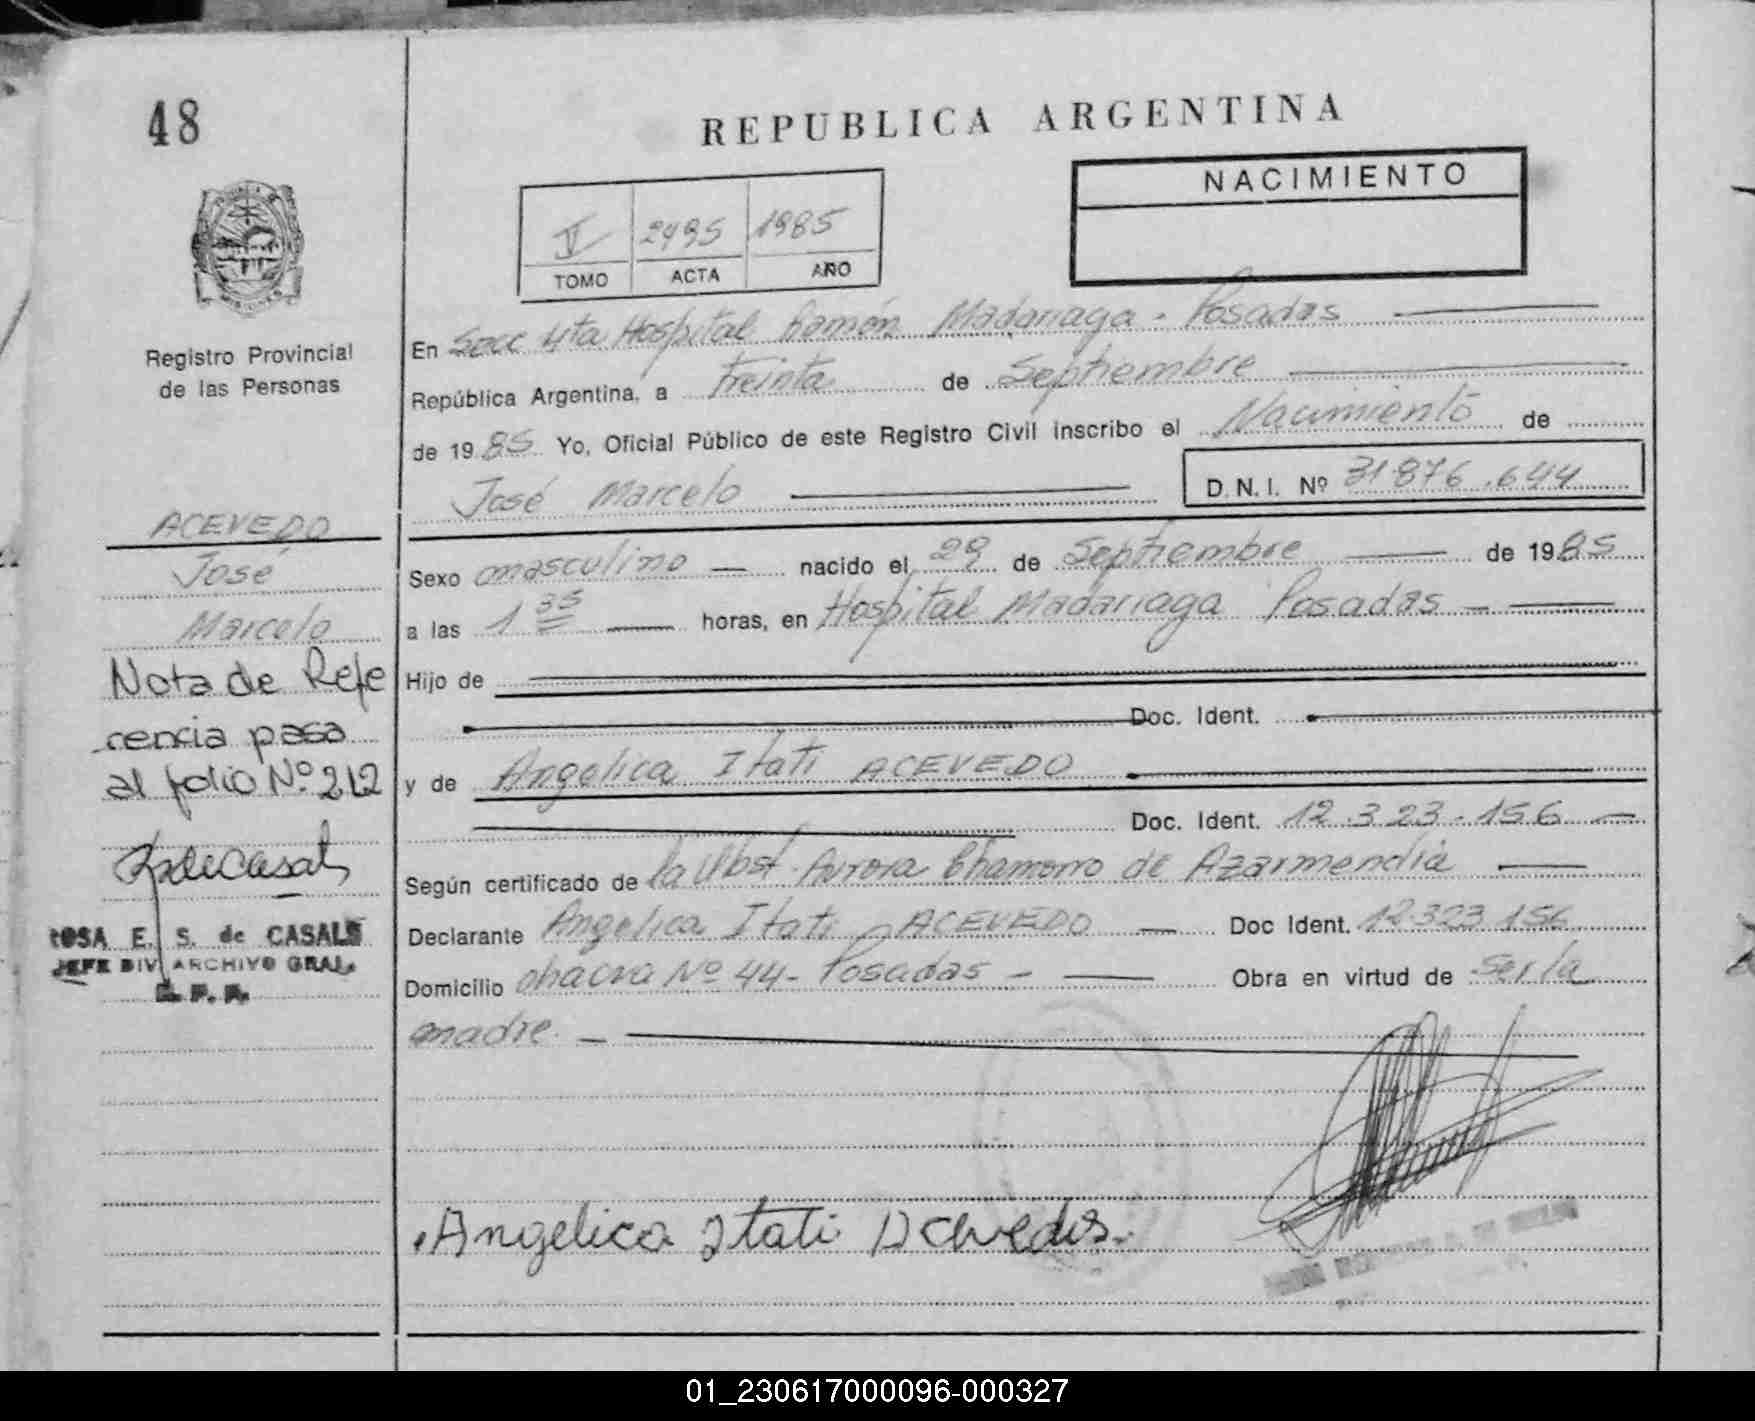 48
REPUBLICA ARGENTINA
NACIMIENTO
V 2495 1985
TOMO ACTA AÑO
Registro Provincial
de las Personas
En Secc 4ta Hospital Ramón Madariaga - Posadas
República Argentina, a treinta de Septiembre
de 1985 Yo, Oficial Público de este Registro Civil inscribo el Nacimiento de
José Marcelo D.N.I. Nº 31.876.644
ACEVEDO
José
Marcelo
Sexo masculino nacido el 29 de Septiembre de 1985
a las 1 35 horas, en Hospital Madariaga Posadas
Hijo de
Doc. Ident.
y de Angelica Itati ACEVEDO
Doc. Ident. 12.323.156
Según certificado de la Obst. Aurora Chamorro de Azarmendia
Declarante Angelica Itati ACEVEDO Doc Ident. 12.323.156
Domicilio chacra Nº 44 - Posadas - Obra en virtud de ser la
madre.
Nota de Refe
rencia pasa
al folio Nº 212
ROSA E. S. de CASALS
JEFE DIV. ARCHIVO GRAL.
Angelica Itati Acevedo
01_230617000096-000327